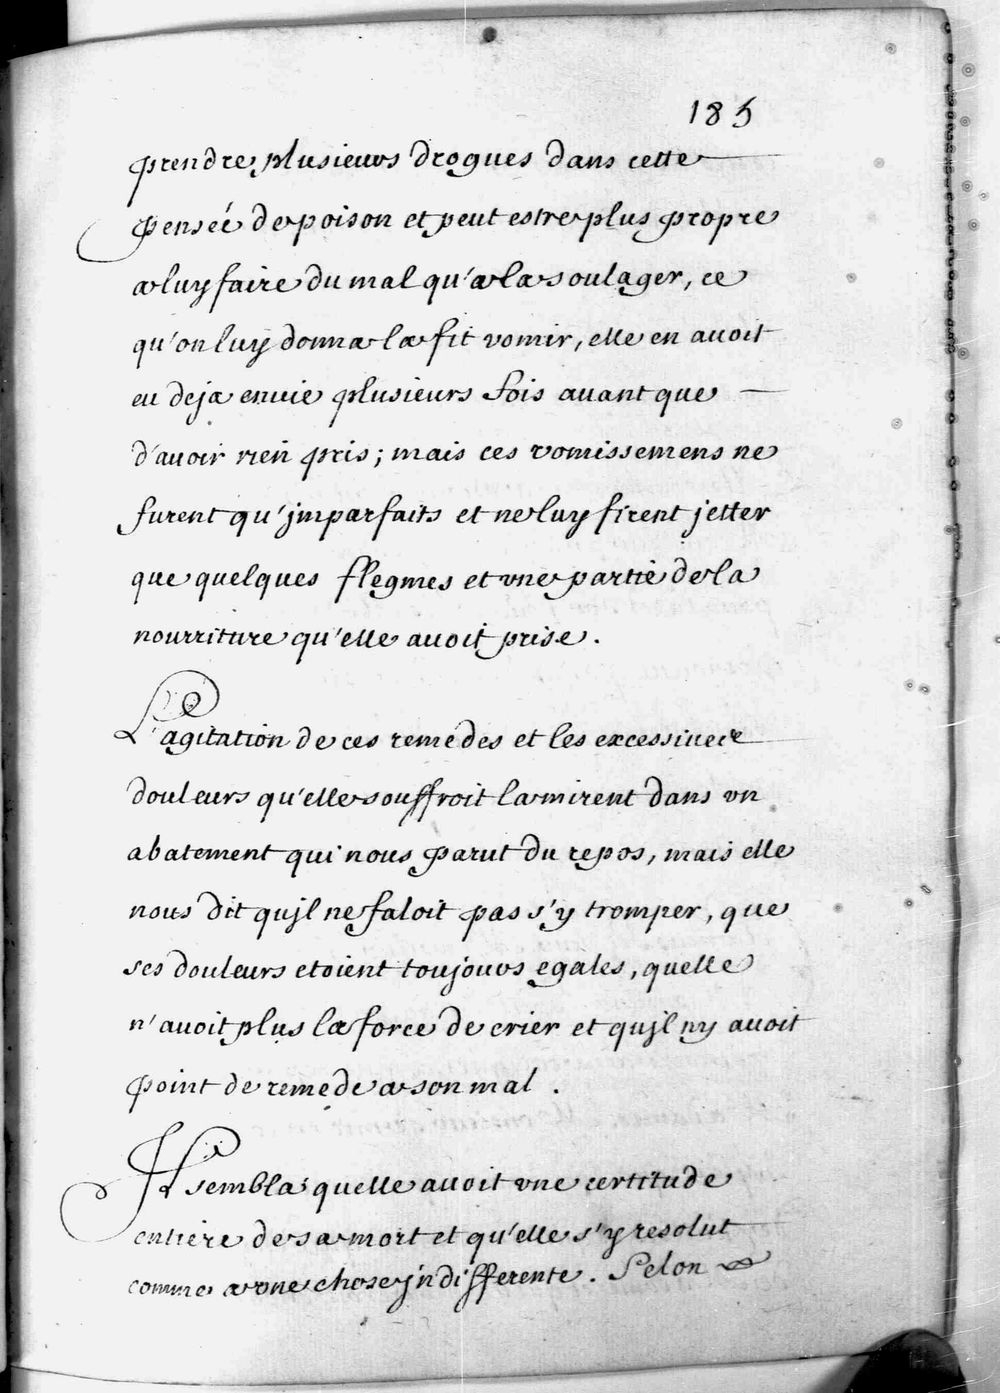 185
prendre plusieurs drogues dans cette
pensée de poison et peut estre plus propre
a luy faire du mal qu'a la soulager, ce
qu'on luy donna la fit vomir, elle en avoit
eu deja envie plusieurs fois avant que
d'avoir rien pris; mais ces vomissemens ne
furent qu'jmparfaits et ne luy firent jetter
que quelques flegmes et vne partie de la
nourriture qu'elle avoit prise.
L'agitation de ces remedes et les excessives
douleurs qu'elle souffroit la mirent dans vn
abatement qui nous parut du repos, mais elle
nous dit qujl ne faloit pas s'y tromper, que
ses douleurs etoient toujours egales, quelle
n'avoit plus la force de crier et qujl ny avoit
point de remede a son mal.
Jl sembla quelle avoit vne certitude
entiere de sa mort et qu'elle s'y resolut
comme a vne chose jndifferente. Selon